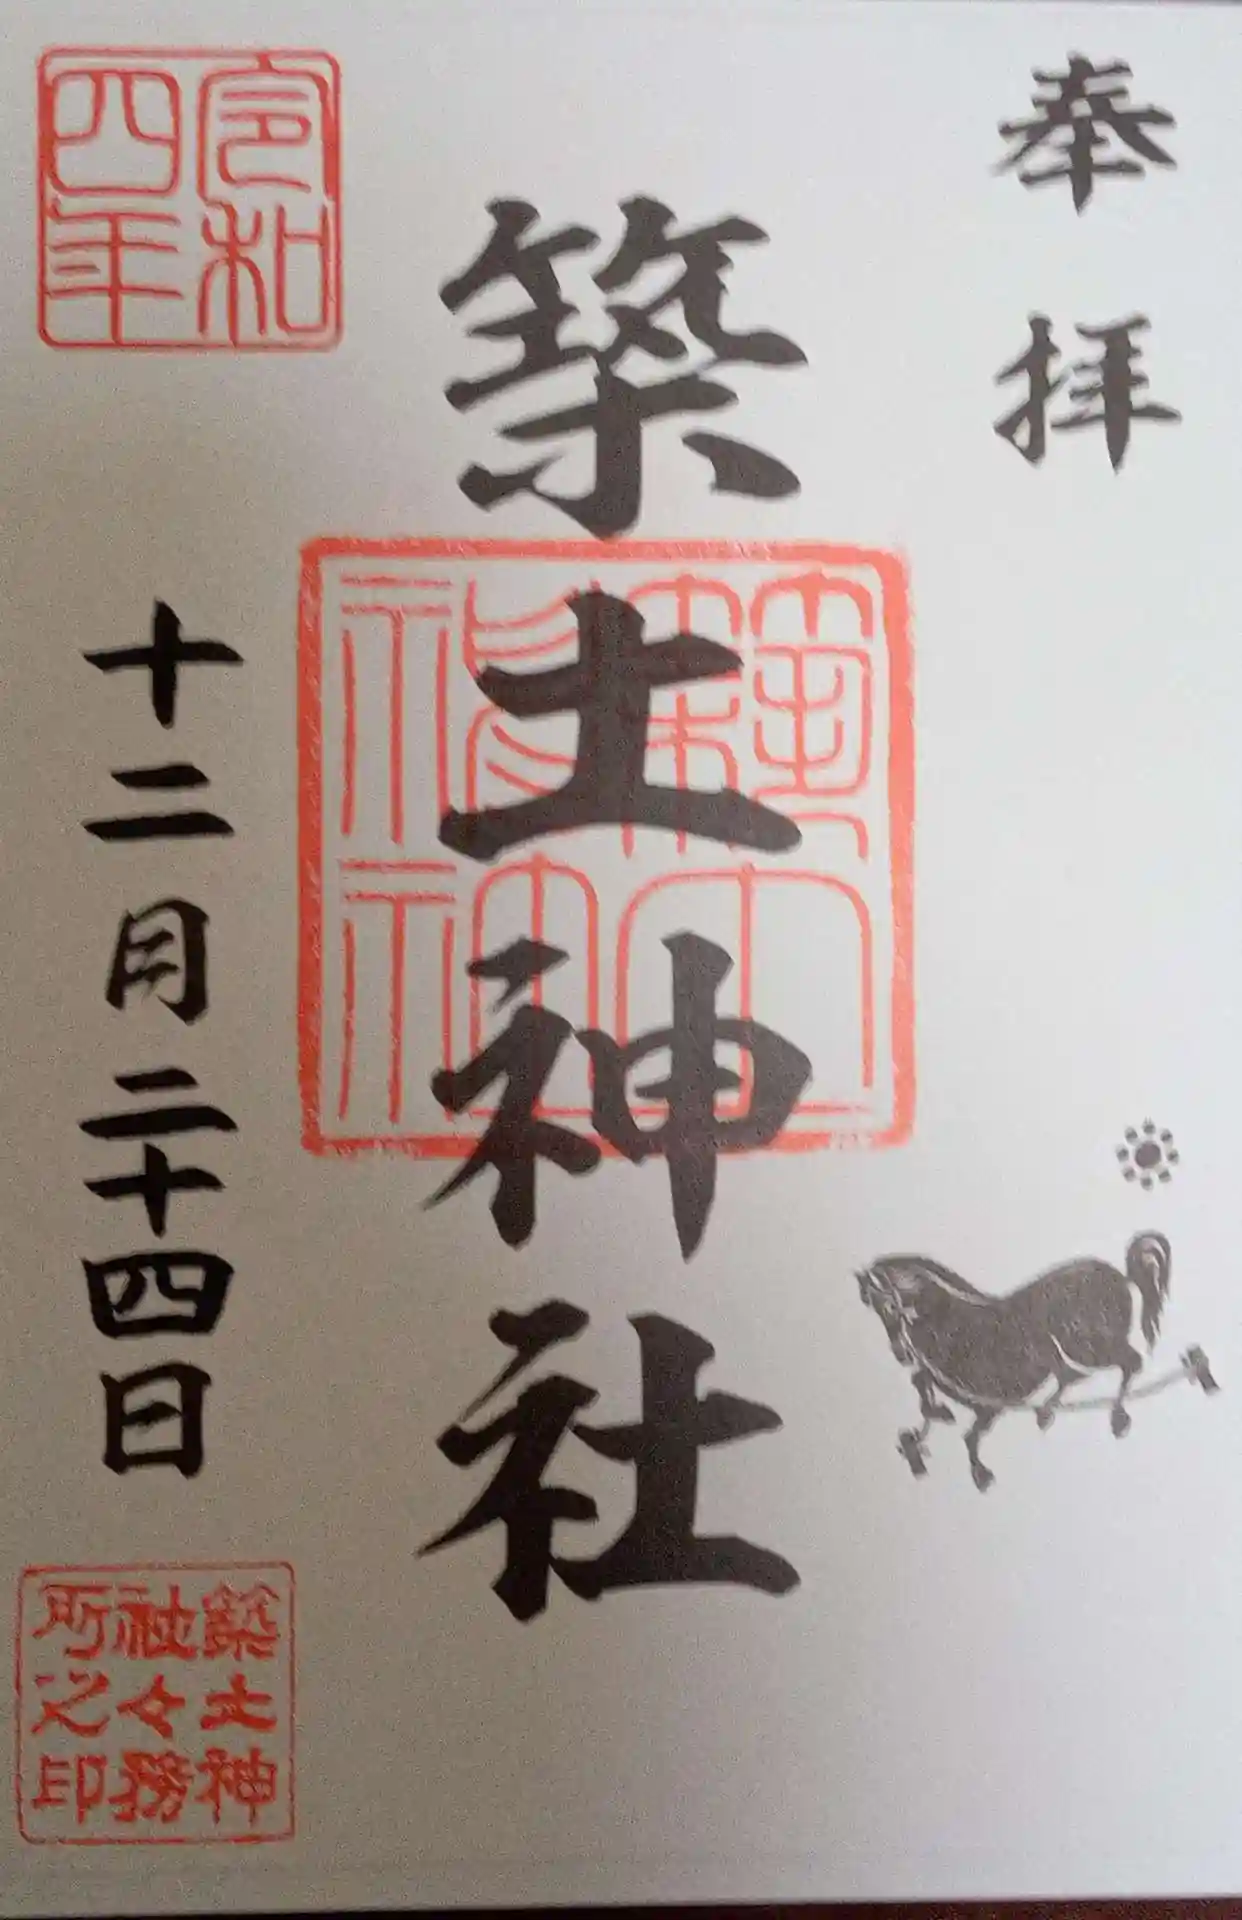 奉拝
築土神社
令和
四年
十二月二十四日
築土神
社々務
所之印